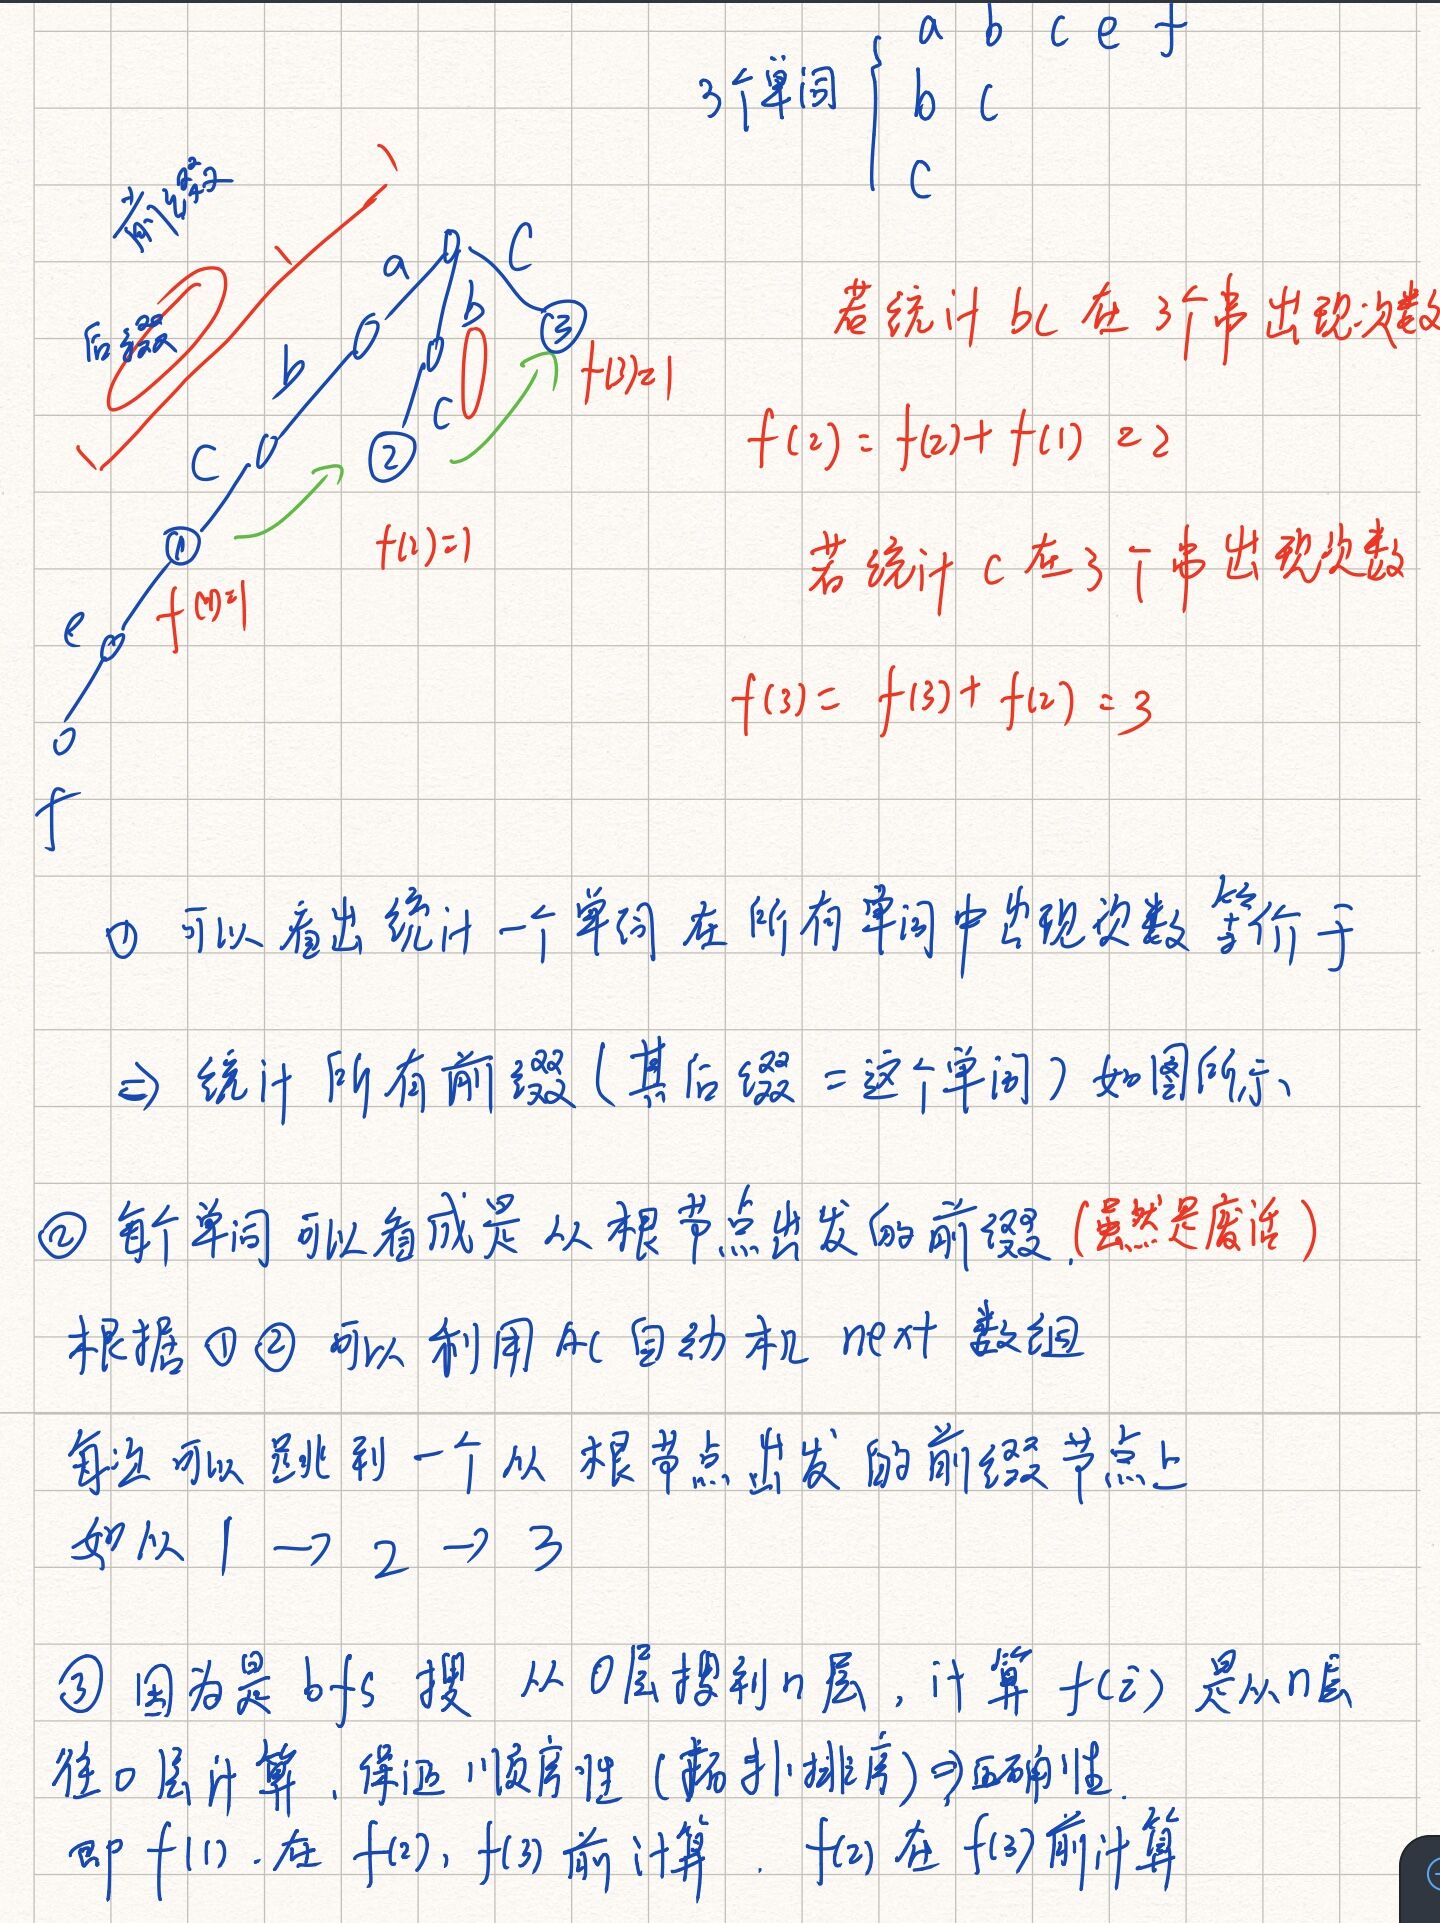 a b c e f
3个单词 b c
c
前缀
后缀
a b c
b c
c
e
f
① ② ③
f(1)=1
f(2)=1
f(3)=1
若统计 bc 在 3个串出现次数
f(2) = f(2)+ f(1) = 2
若统计 c 在 3个串出现次数
f(3) = f(3)+ f(2) = 3
① 可以看出统计一个单词在所有单词中出现次数等价于
=> 统计所有前缀(其后缀 = 这个单词) 如图所示、
② 每个单词可以看成是从根节点出发的前缀.(虽然是废话)
根据①②可以利用AC自动机 next 数组
每次可以跳到一个从根节点出发的前缀节点上
如从 1 → 2 → 3
③ 因为是 bfs 搜 从0层搜到n层, 计算 f(i) 是从n层
往0层计算、保证顺序性(拓扑排序)⇒正确性.
即 f(1).在 f(2), f(3)前计算. f(2)在f(3)前计算